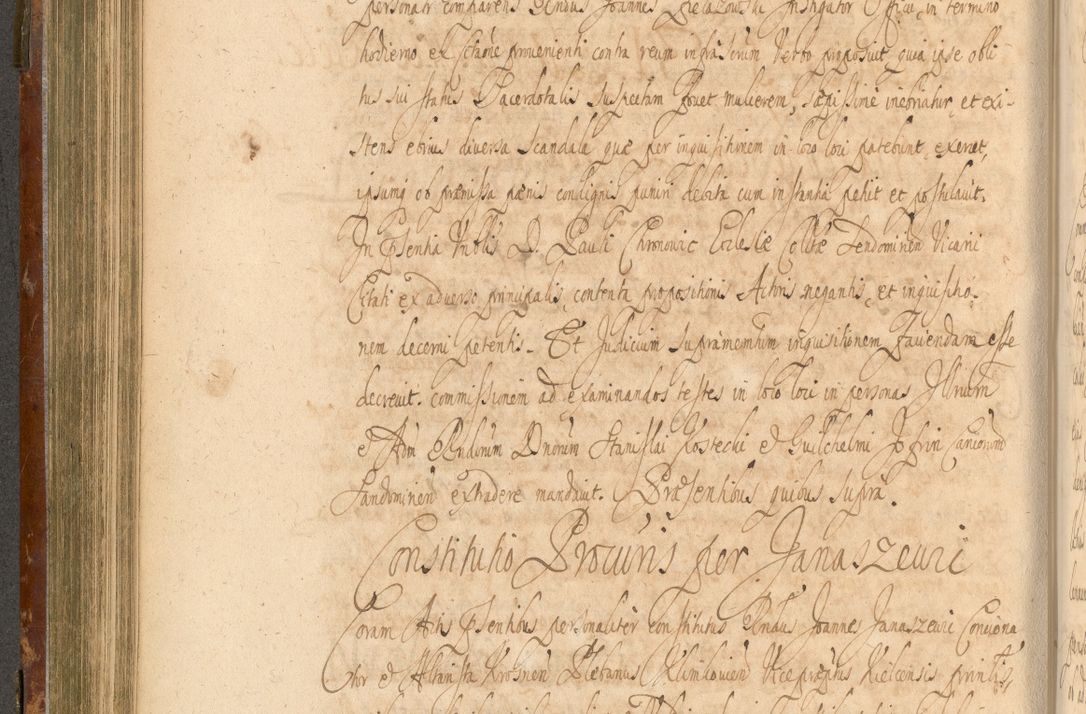 personalr comparens Rndus Joannes Pielazowski Instigator Officii, in termino
hodierno ex citaõne provenienti contra reum infrascrum Verbo proposuit, quia ipse obli
tus sui status Sacerdotalis suspectam fovet mulierem, sæpissime inebriatur, et exi-
stens ebrius diversa scandala quæ per inquisitionem in loco loci patebunt exercet,
ipsumq ob præmissa pænis condignis puniri debita cum instantia petiit et postulavit.
In Psentia Nblis D. Pauli Chronowic Ecclesiæ Colltæ Sendomirien Vicarii
Citati ex adverso principalis, contenta propositionis Actoris negantis, et inquisitio-
nem decerni petentis. Et Judicium supramemtum inquisitionem faciendam esse
decrevit. commissionem ad examinandos testes in loco loci in personas Illrium
et Adm Rndorum Dnorum Stanislai Kostecki et Guilhelmi Canicorum
Sandomirien extradere mandavit. Præsentibus quibus supra.
Constitutio Procuris per Janaszewic
Coram Actis Psentibus personaliter constitutus Rndus Joannes Janaszewic Conciona
tor et Altarista Krosnen Plebanus Klimkovien Vicepræptus Kielcensis prinlis